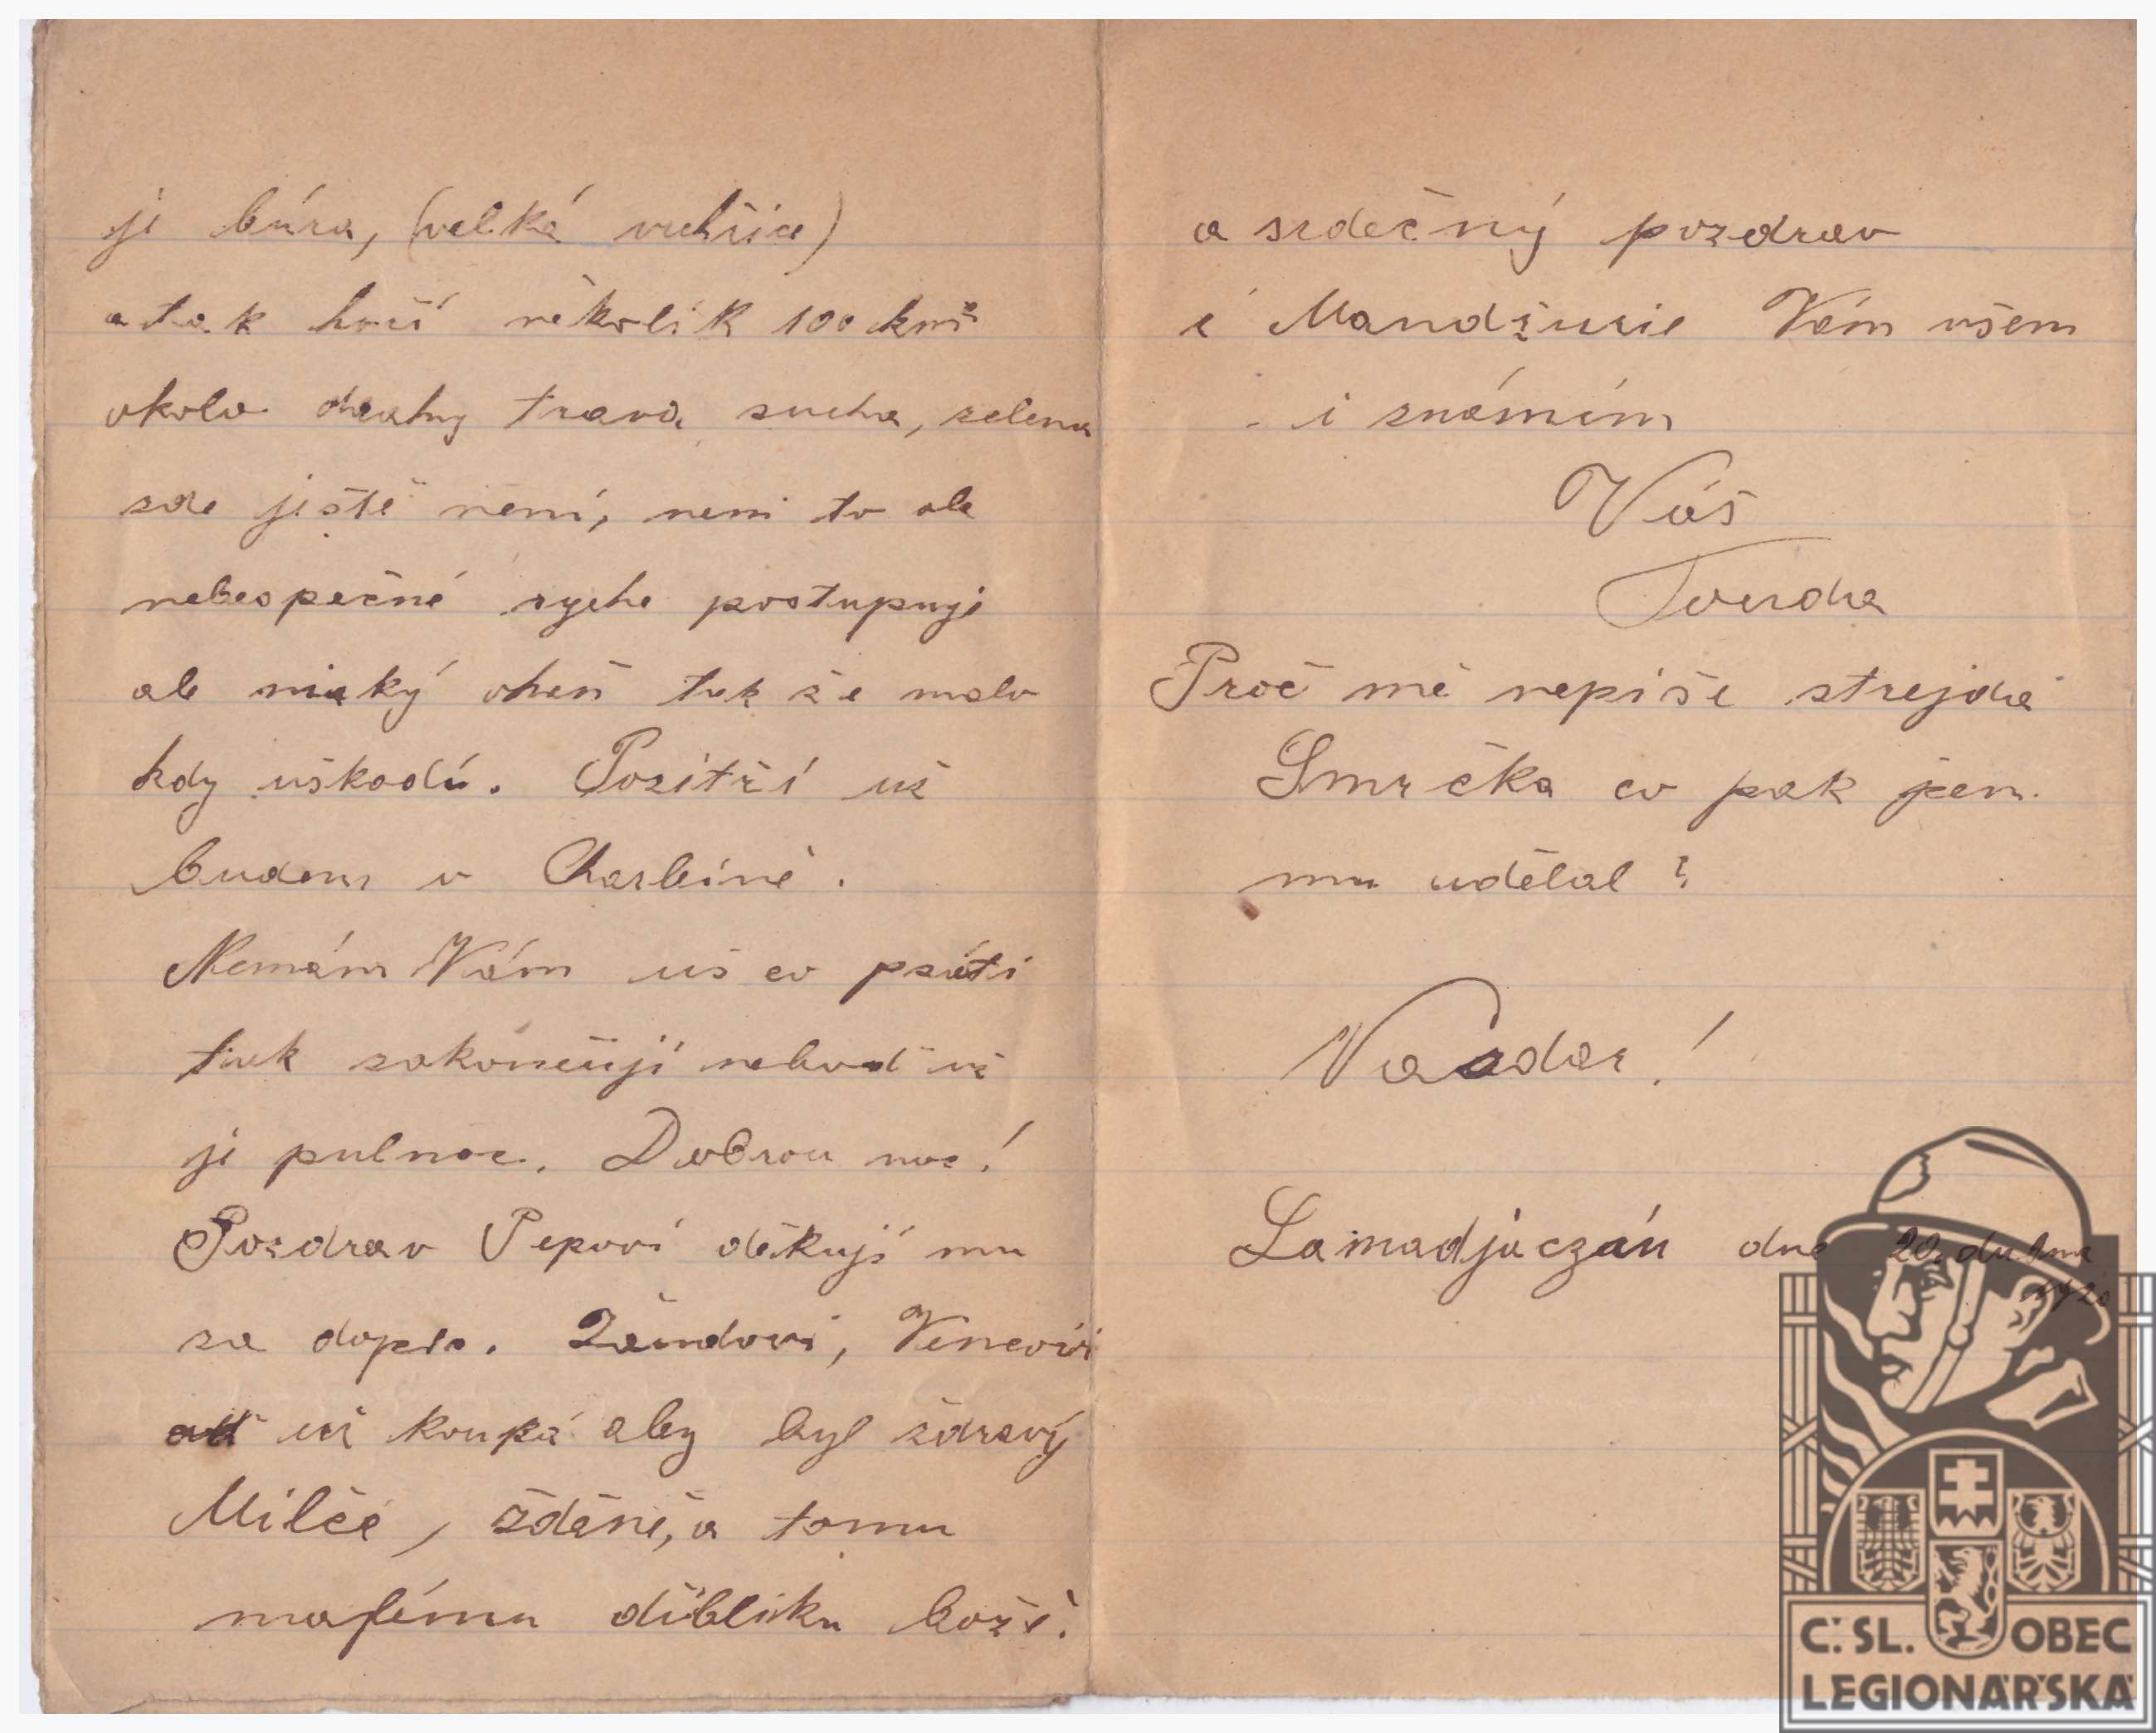 je búra, (velká vichřice)
a tak hoří několik 100 km²
okolo drahy trava sucha, zelena
zde ještě není, neni to ale
nebezpečné ryche postupuje
ale nizký oheň tak že malo
kdy uškodí. Pozítří už
budem v Charbině.
Nemám Vám uš co psáti
tak zakončuji neboď už
je pulnoc. Dobrou noc!
Pozdrav Pepovi děkuji mu
za dopis. Žandovi, Vencovi
ať už kouká aby byl zdravý
Milče, Zděně, a tomu
malému diblíku boží.
a srdečný pozdrav
z Mandžurie Vám všem
i známím
Váš
Tonda
Proč mě nepíše strejda
Smrčka co pak jsem
mu udělal?
Nazdar!
Lamadjáczán dne 20. dubna
1920
Č. SL. OBEC
LEGIONÁŘSKÁ